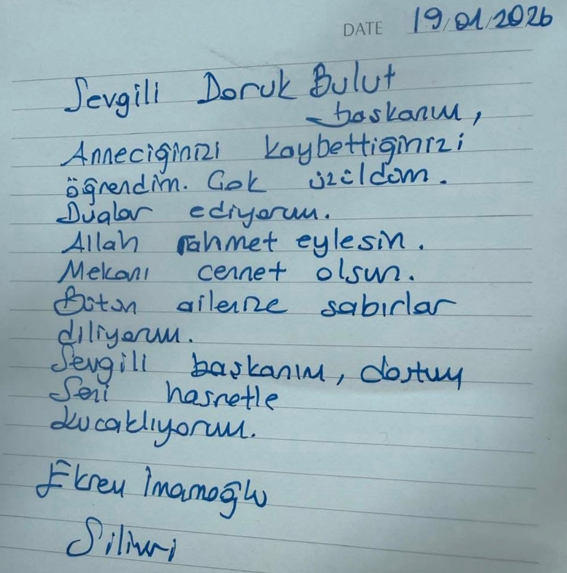 DATE 19/01/2026
Sevgili Doruk Bulut
başkanım,
Anneciğinizi kaybettiğinizi
öğrendim. Çok üzüldüm.
Dualar ediyorum.
Allah rahmet eylesin.
Mekanı cennet olsun.
Bütün ailenize sabırlar
diliyorum.
Sevgili başkanım, dostum
Seni hasretle
kucaklıyorum.
Ekrem İmamoğlu
Silivri